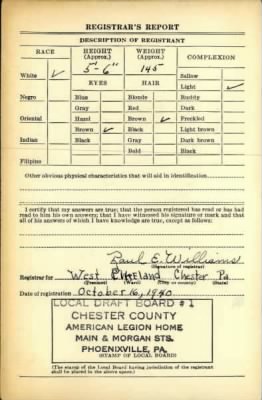 REGISTRAR'S REPORT
DESCRIPTION OF REGISTRANT
RACE
HEIGHT (Approx.)
WEIGHT (Approx.)
COMPLEXION
White ✓
5-6"
145
Sallow
EYES
HAIR
Light ✓
Negro
Blue
Blonde
Ruddy
Gray
Red
Dark
Oriental
Hazel
Brown ✓
Freckled
Brown ✓
Black
Light brown
Indian
Black
Gray
Dark brown
Bald
Black
Filipino
Other obvious physical characteristics that will aid in identification
I certify that my answers are true; that the person registered has read or has had
read to him his own answers; that I have witnessed his signature or mark and that
all of his answers of which I have knowledge are true, except as follows:
Paul E. Williams
(Signature of registrar)
Registrar for West Chester Pa.
(Precinct) (Ward) (City or county) (State)
Date of registration October 16, 1940
LOCAL DRAFT BOARD #1
CHESTER COUNTY
AMERICAN LEGION HOME
MAIN & MORGAN STS.
PHOENIXVILLE, PA.
(STAMP OF LOCAL BOARD)
(The stamp of the Local Board having jurisdiction of the registrant
shall be placed in the above space.)